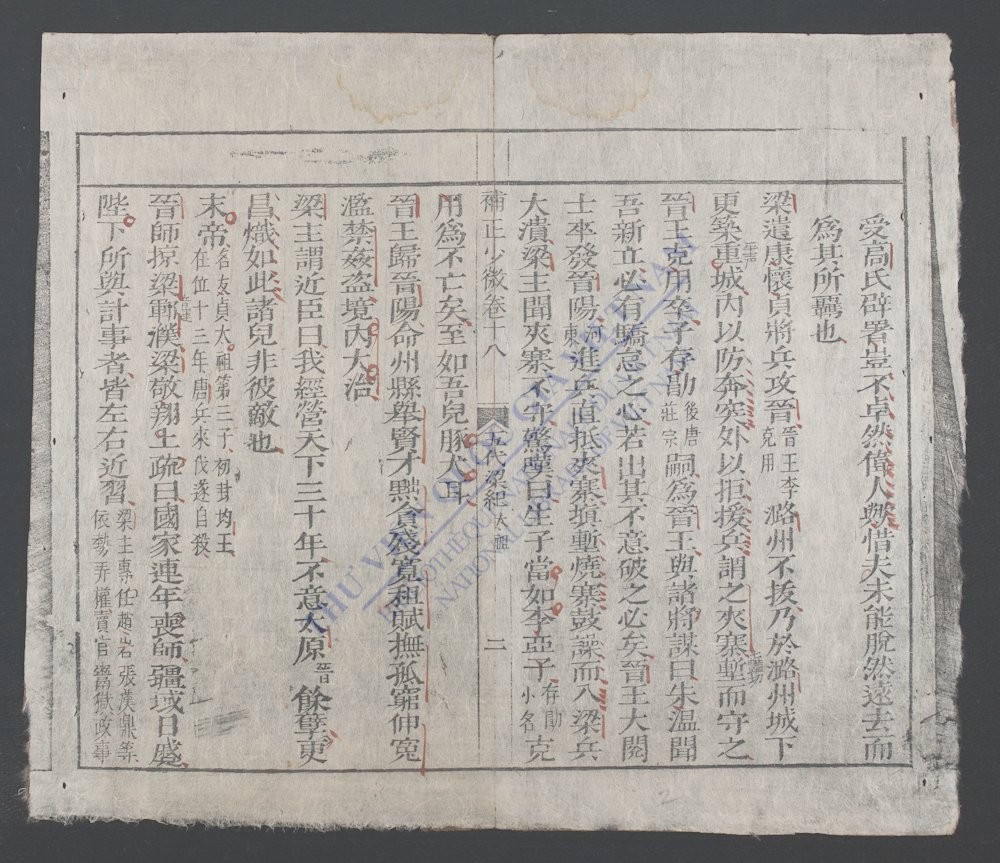 受高氏辟署豈不卓然偉人與惜夫未能脫然遠去而
爲其所羈也
梁遣康懷貞將兵攻晉晉王李克用潞州不拔乃於潞州城下
更築重城內以防奔突外以拒援兵謂之夾寨塹而守之
晉王克用卒子存勖後唐莊宗嗣爲晉王與諸將謀曰朱温聞
吾新立必有驕怠之心若出其不意破之必矣晉王大閱
士卒發晉陽河東進兵直抵夾寨塡塹燒寨鼓譟而入梁兵
大潰梁主聞夾寨不守驚嘆曰生子當如李亞子存勖小名克
補正少微卷十八 五代梁紀太祖 二
用爲不亡矣至如吾兒豚犬耳
晉王歸晉陽命州縣舉賢才黜貪殘寬租賦撫孤窮伸冤
濫禁姦盗境內大治
梁主謂近臣曰我經營天下三十年不意太原晉餘孽更
昌熾如此諸兒非彼敵也
末帝名友貞太祖第三子初封均王在位十三年唐兵來伐遂自殺
晉師掠梁鄆濮梁敬翔上疏曰國家連年喪師疆域日蹙
陛下所與計事者皆左右近習梁主專任趙岩張漢鼎等依勢弄權賣官鬻獄政事
THƯ VIỆN QUỐC GIA VIỆT NAM
BIBLIOTHÈQUE NATIONALE DU VIETNAM
NATIONAL LIBRARY OF VIETNAM